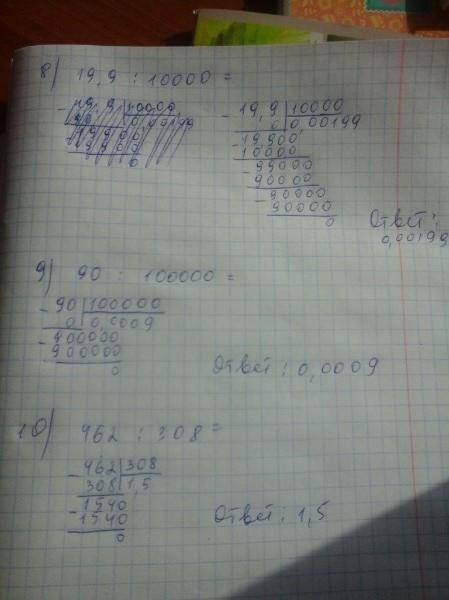 8) 19,9 : 10000 =
- 19,9 | 10000
0 | 0,00199
- 19,900
10000
- 99000
90000
- 90000
90000
0
Ответ:
0,00199
9) 90 : 100000 =
- 90 | 100000
0 | 0,0009
- 900000
900000
0
Ответ: 0,0009
10) 462 : 308 =
- 462 | 308
308 | 1,5
- 1540
1540
0
Ответ: 1,5